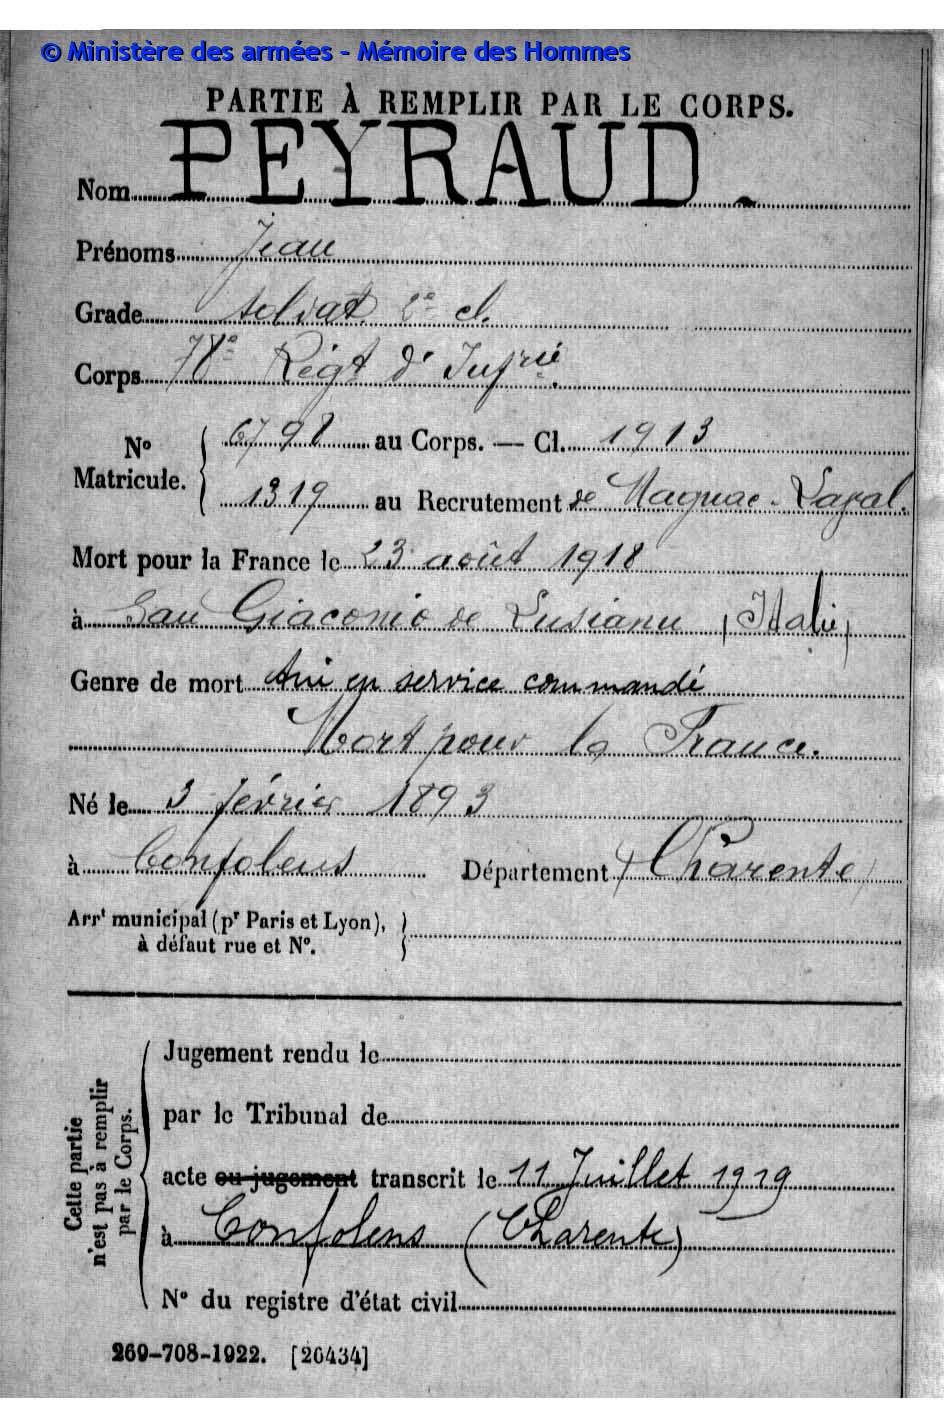 © Ministère des armées - Mémoire des Hommes
PARTIE À REMPLIR PAR LE CORPS.
Nom PEYRAUD.
Prénoms Jean
Grade soldat 2e cl.
Corps 78e Régt d'Infrie.
No Matricule. { 6798 au Corps. — Cl. 1913
1319 au Recrutement de Magnac-Laval.
Mort pour la France le 23 août 1918
à San Giacomo de Lusianu (Italie)
Genre de mort Tué en service commandé
Mort pour la France.
Né le 3 février 1893
à Confolens Département (Charente)
Arrt municipal (pr Paris et Lyon), }
à défaut rue et No. }
Cette partie n'est pas à remplir par le Corps.
Jugement rendu le
par le Tribunal de
acte ou jugement transcrit le 11 Juillet 1919
à Confolens (Charente)
No du registre d'état civil
269-708-1922. [26434]